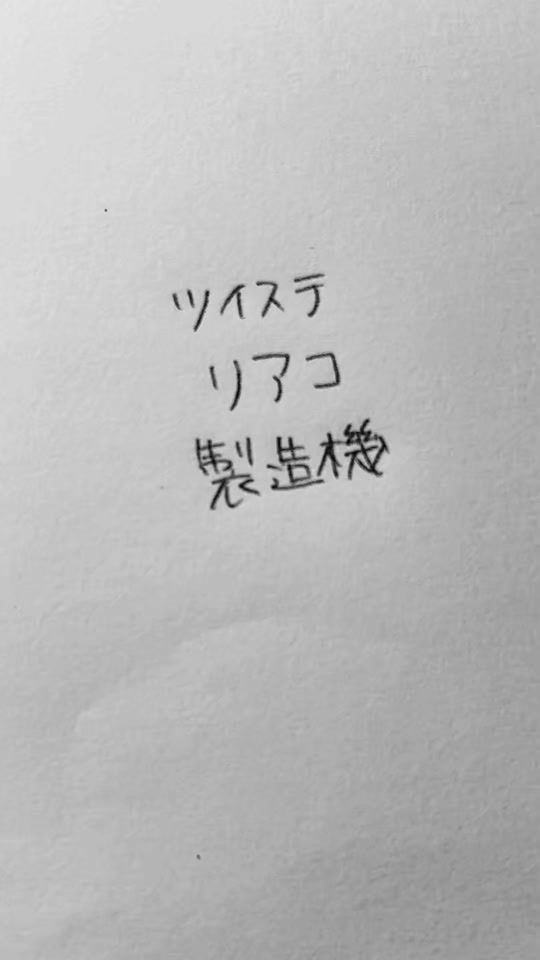 ツイステ
リアコ
製造機